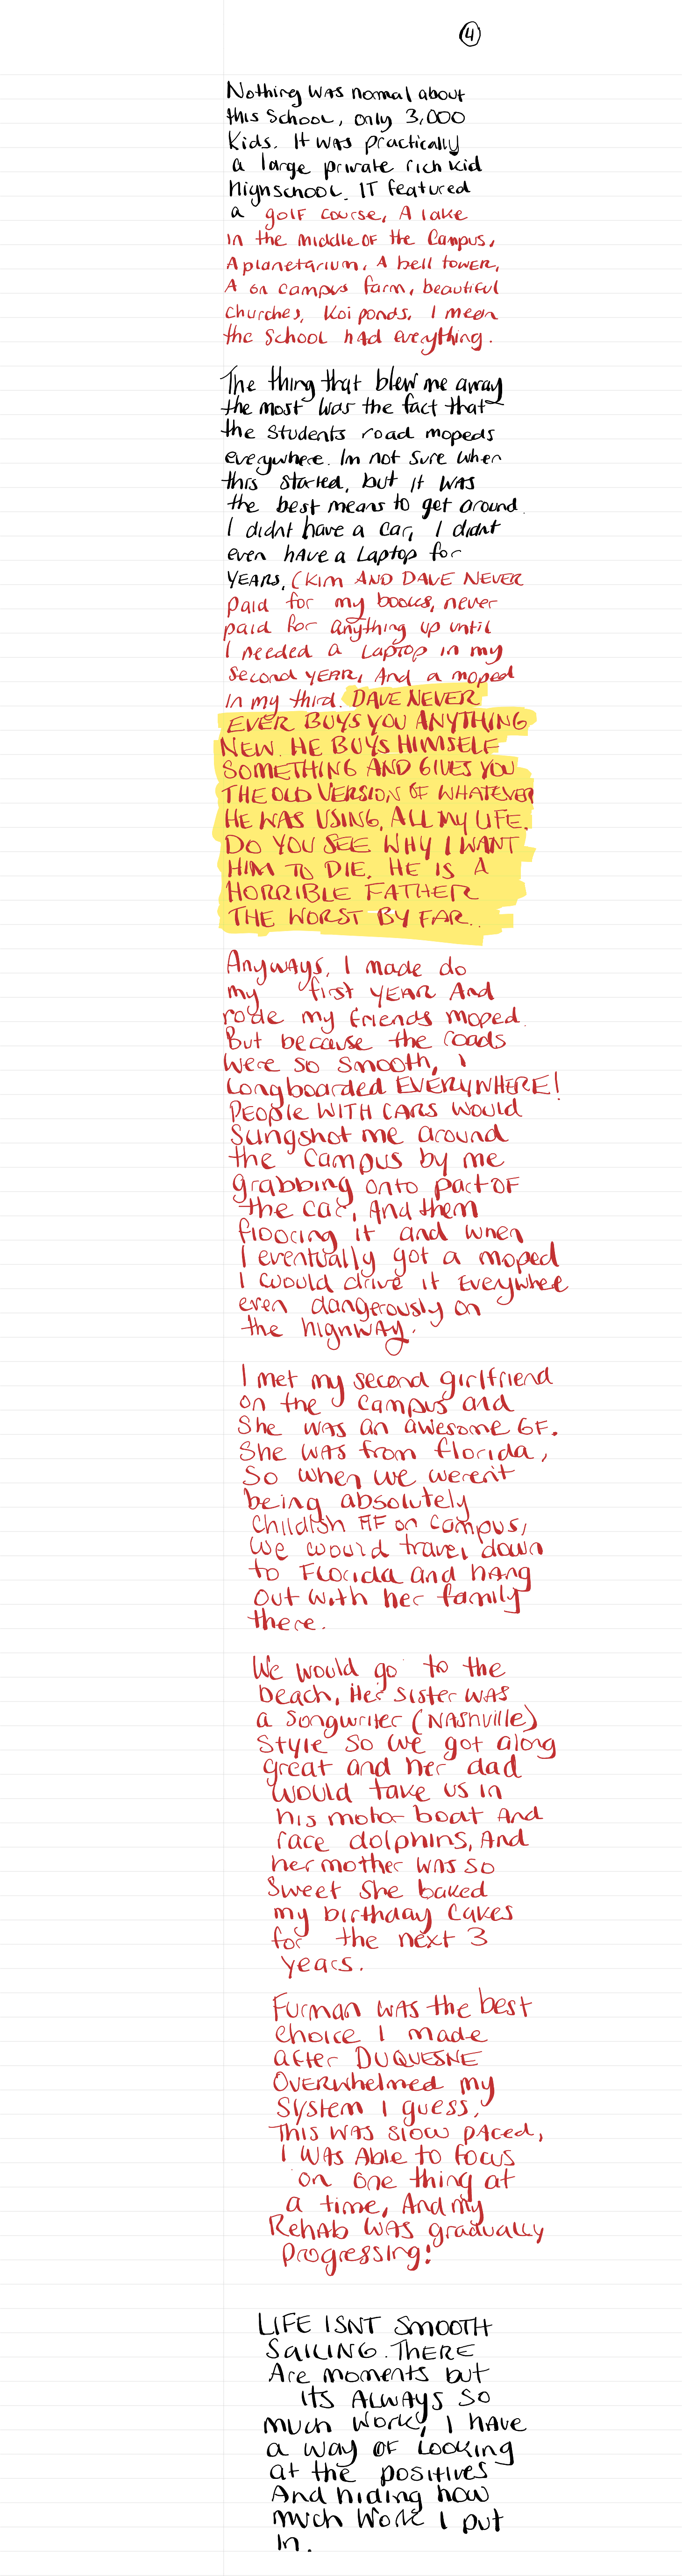 4
Nothing was normal about
this School, only 3,000
Kids. It was practically
a large private rich kid
Highschool. IT featured
a golf course, A lake
in the middle of the Campus,
A planetarium, A bell tower,
A on campus farm, beautiful
churches, Koi ponds, I mean
the School had everything.
The thing that blew me away
the most was the fact that
the Students road mopeds
everywhere. Im not sure when
this started, but it was
the best means to get around.
I didnt have a car, I didnt
even have a Laptop for
YEARS, (KIM AND DAVE NEVER
paid for my books, never
paid for anything up until
I needed a Laptop in my
second YEAR, And a moped
in my third. DAVE NEVER
EVER BUYS YOU ANYTHING
NEW. HE BUYS HIMSELF
SOMETHING AND GIVES YOU
THE OLD VERSION OF WHATEVER
HE WAS USING, ALL MY LIFE.
DO YOU SEE WHY I WANT
HIM TO DIE. HE IS A
HORRIBLE FATHER
THE WORST BY FAR..
Anyways, I made do
my first YEAR And
rode my friends moped.
But because the roads
were so smooth, I
Longboarded EVERYWHERE!
PEOPLE WITH CARS would
Slingshot me around
the campus by me
grabbing onto part OF
the car, And them
flooring it and when
I eventually got a moped
I would drive it Everywhee
even dangerously on
the highway.
I met my second girlfriend
on the campus and
She was an awesome GF.
She was from florida,
So when we weren't
being absolutely
Childish AF on campus,
we would travel down
to Florida and hang
out with her family
there.
We would go to the
beach, Her Sister WAS
a Songwriter (NAShville)
Style so we got along
great and her dad
would take us in
his motor boat And
race dolphins, And
her mother was so
Sweet She baked
my birthday cakes
for the next 3
years.
Furman was the best
choice I made
after DUQUESNE
OVERwhelmed my
System I guess,
This was slow paced,
I was Able to focus
on one thing at
a time, And my
Rehab was gradually
Progressing!
LIFE ISNT SMOOTH
SAILING. THERE
Are moments but
ITS ALWAYS SO
much work, I have
a way of Looking
at the positives
And hiding how
much work I put
in.